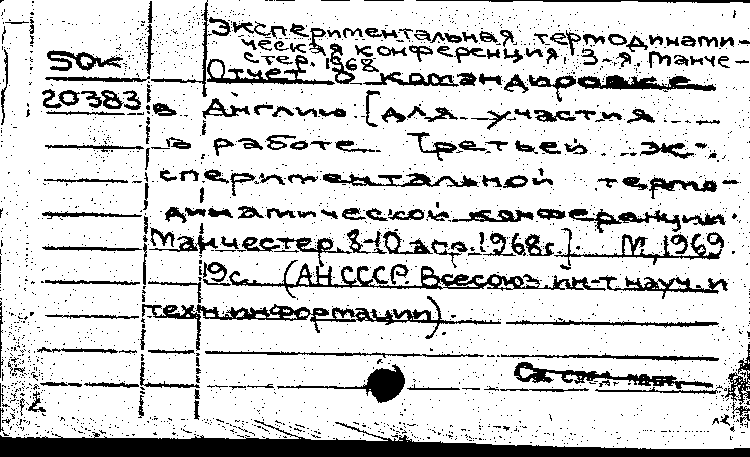 Экспериментальная термодинами-
ческая конференция, 3-я. Манче-
стер. 1968
50к Отчет о командировке
20383 в Англию [для участия
в работе Третьей эк-
спериментальной термо-
динамической конференции.
Манчестер. 8-10 апр. 1968г.]. М., 1969.
19с. (АН СССР. Всесоюз. ин-т науч. и
техн. информации).
См. след. карт.